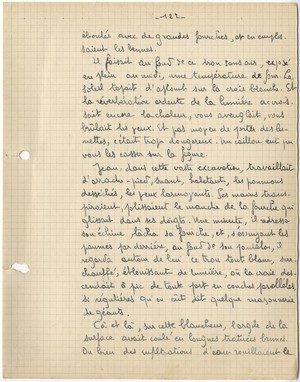 - 122 -
éboulée avec de grandes fourches, et en emplis-
saient les bennes.
Il faisait au fond de ce trou sans air, exposé
en plein au midi, une température de four. Le
soleil tapait d'aplomb sur la craie blanche. Et
la réverbération ardente de la lumière accrois-
sait encore la chaleur, vous aveuglait, vous
brûlait les yeux. Et pas moyen de porter des lu-
nettes, c'était trop dangereux. Un caillou eut pu
vous les casser sur la figure.
Jean, dans cette vaste excavation, travaillait
d'arrache-pied, suant, haletant, les poumons
desséchés, les yeux larmoyants. Ses mains trans-
piraient, polissaient le manche de la fourche qui
glissait dans ses doigts. Une minute, il redressa
son échine, lâcha sa fourche, et, s'essuyant les
paumes par derrière, au fond de son pantalon, il
regarda autour de lui ce trou tout blanc, sur-
chauffé, éblouissant de lumière, où la craie des-
cendait à pic de toute part en couches parallèles
si régulières qu'on eût dit quelque maçonnerie
de géants.
Çà et là, sur cette blancheur, l'argile de la
surface avait coulé en longues traînées brunes.
Ou bien des infiltrations d'eau rouillaient le